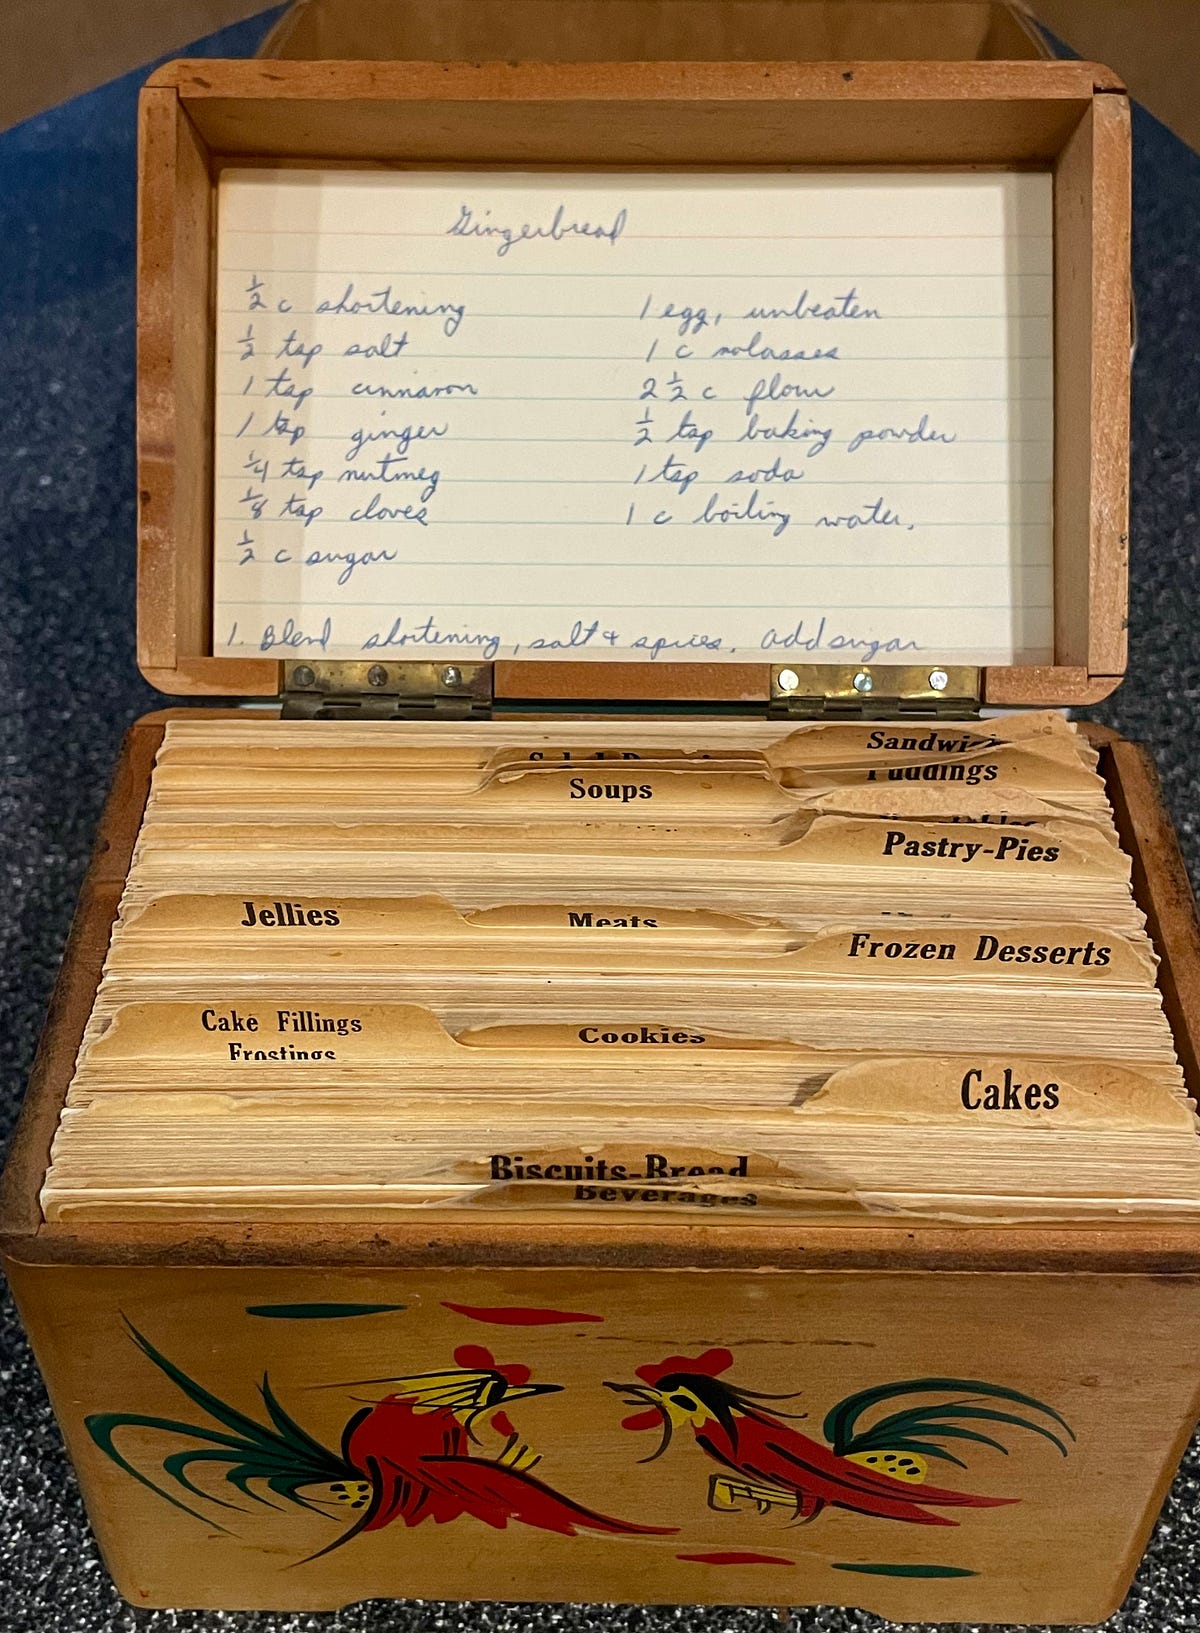 Gingerbread
½ c shortening
½ tsp salt
1 tsp cinnamon
1 tsp ginger
¼ tsp nutmeg
⅛ tsp cloves
½ c sugar
1 egg, unbeaten
1 c molasses
2 ½ c flour
½ tsp baking powder
1 tsp soda
1 c boiling water.
1. Blend shortening, salt & spices. Add sugar
Puddings
Soups
Pastry-Pies
Jellies
Meats
Frozen Desserts
Cake Fillings
Frostings
Cookies
Cakes
Biscuits-Bread
Beverages